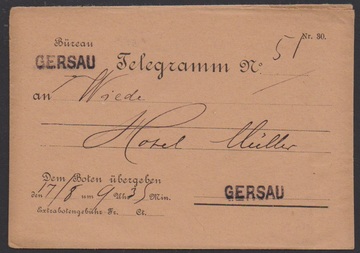 Büreau Nr. 30.
GERSAU Telegramm No. 51
an Wiede
Hotel Müller
Dem Boten übergeben
den 17/8 um 9 Uhr 35 Min.
Extrabotengebühr Fr. Ct.
GERSAU